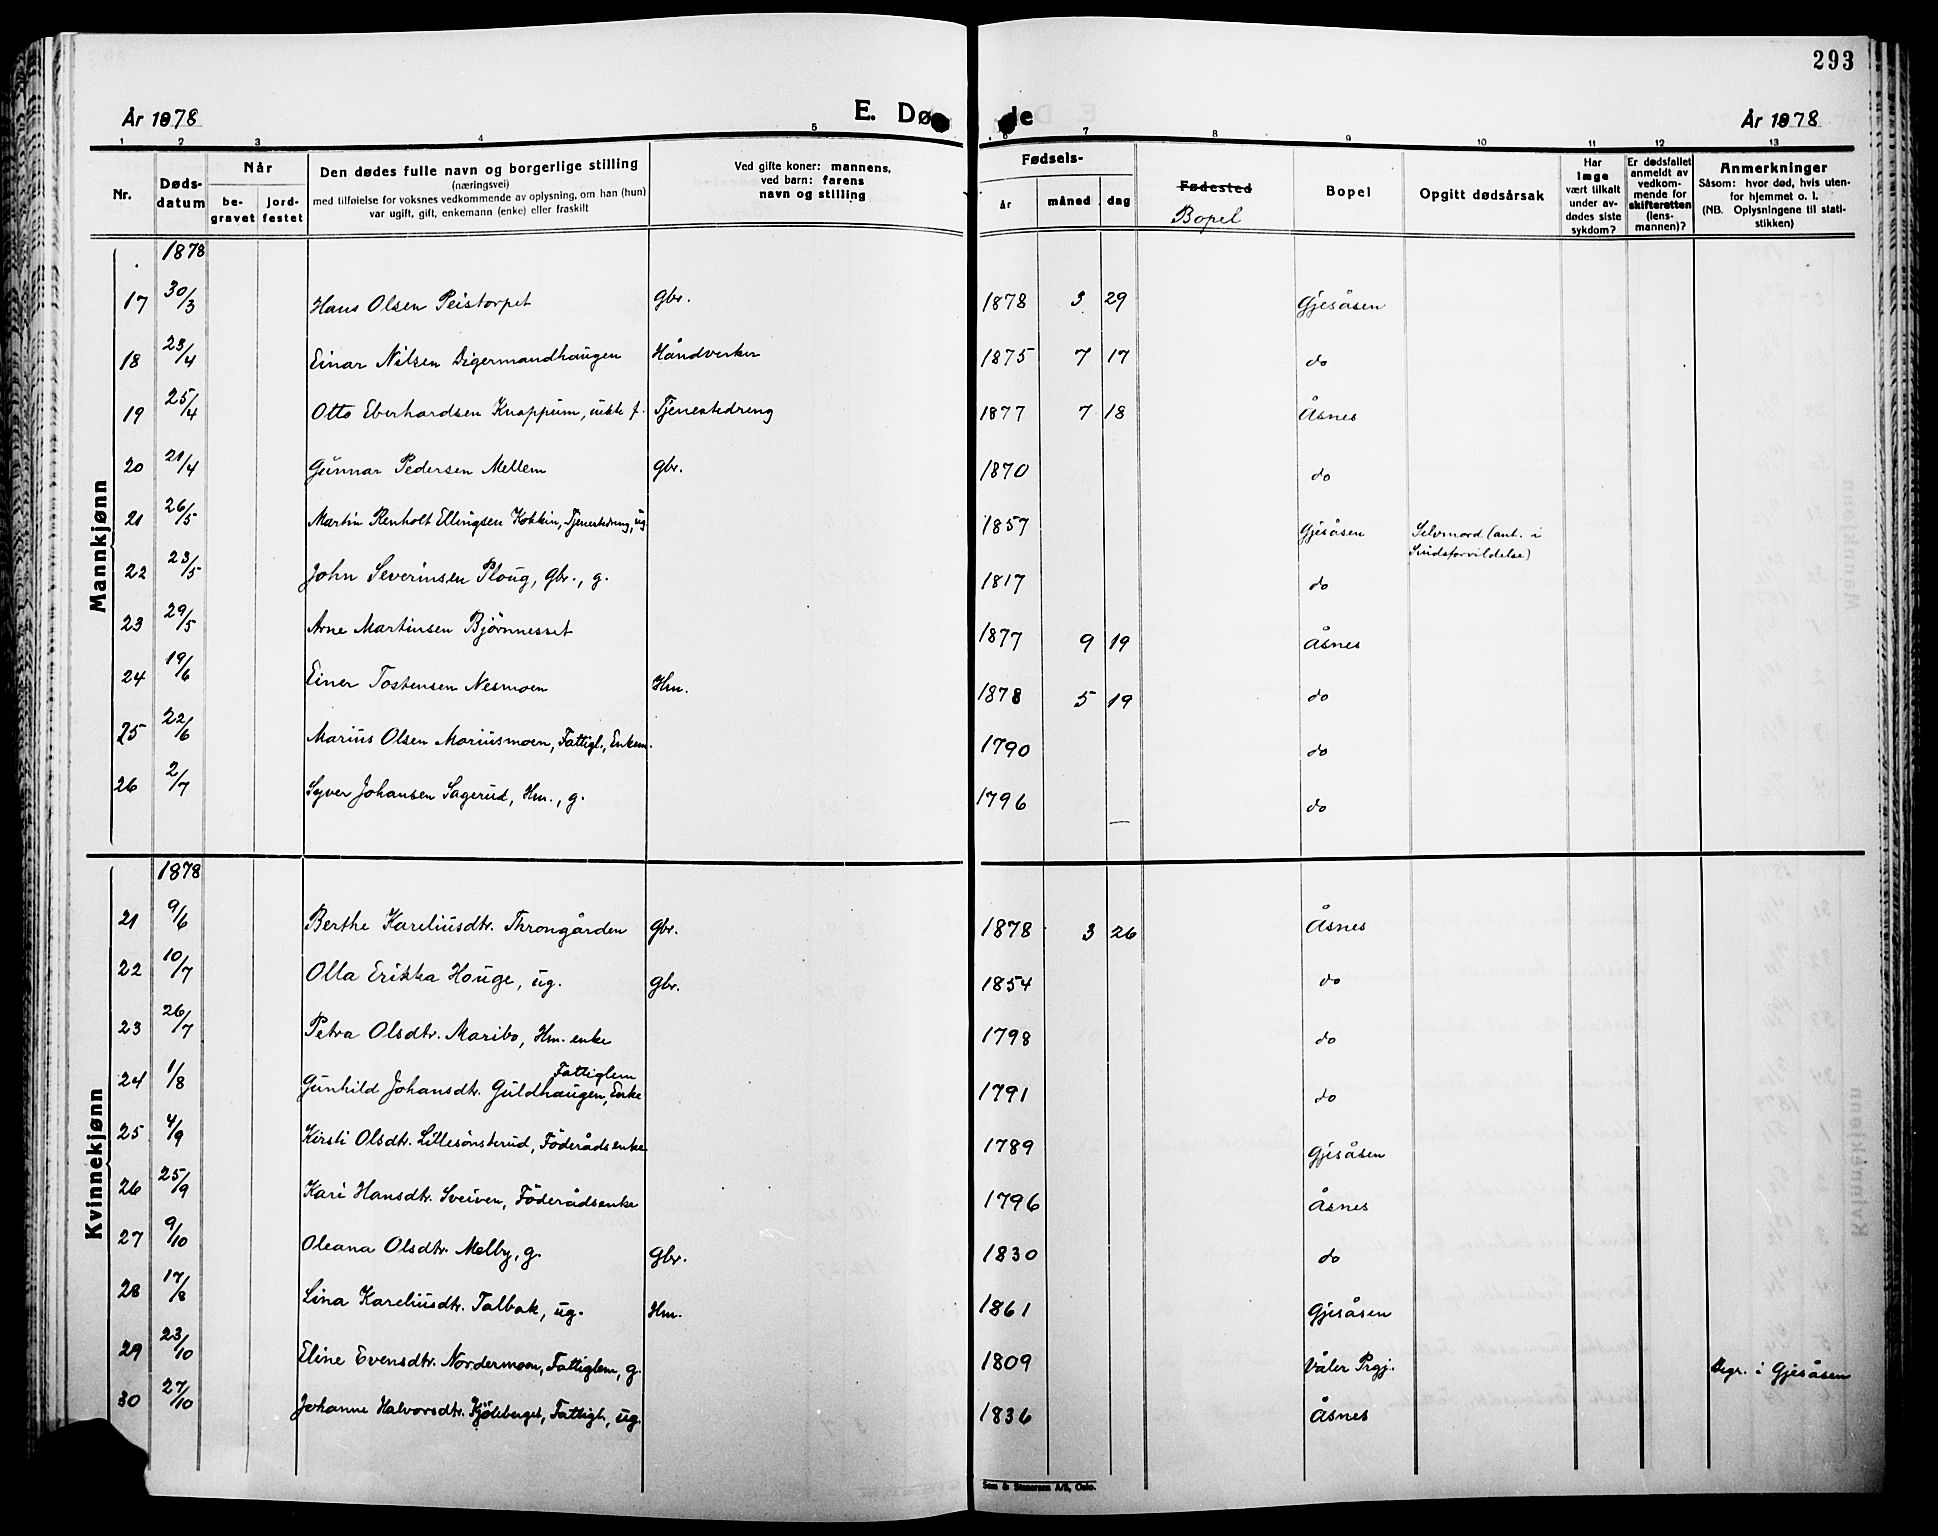 293
År 1878
E. Døde
År 1878
1 2 3 4 5 6 7 8 9 10 11 12 13
Nr.
Døds-
datum
Når
be-
gravet
jord-
festet
Den dødes fulle navn og borgerlige stilling
(næringsvei)
med tilføielse for voksnes vedkommende av oplysning, om han (hun)
var ugift, gift, enkemann (enke) eller fraskilt
Ved gifte koner: mannens,
ved barn: farens
navn og stilling
Fødsels-
år måned dag
Fødested
Bopel
Bopel
Opgitt dødsårsak
Har
læge
vært tilkalt
under av-
dødes siste
sykdom?
Er dødsfallet
anmeldt av
vedkom-
mende for
skifteretten
(lens-
mannen)?
Anmerkninger
Såsom: hvor død, hvis uten-
for hjemmet o. l.
(NB. Oplysningene til stati-
stikken)
Mannkjønn
1878
17 30/3 Hans Olsen Peistorpet Gbr. 1878 3 29 Gjesåsen
18 23/4 Einar Nilsen Digermandhaugen Håndverker 1875 7 17 do
19 25/4 Otto Eberhardsen Knappum, uekte f. Tjenestedreng 1877 7 18 Åsnes
20 21/4 Gunnar Pedersen Mellem Gbr. 1870 do
21 26/5 Martin Renholt Ellingsen Kokkin, Tjenestedreng, ug. 1857 Gjesåsen Selvmord (ant. i
Sindsforvildelse)
22 23/5 John Severinsen Ploug, Gbr., g. 1817 do
23 29/5 Arne Martinsen Björnnesset 1877 9 19 Åsnes
24 19/6 Einer Tostensen Nesmoen Hm. 1878 5 19 do
25 22/6 Marius Olsen Mariusmoen, Fattigl., Enkem. 1790 do
26 2/7 Syver Johansen Sagerud, Hm., g. 1796 — do
Kvinnekjønn
1878
21 9/6 Berthe Kareliusdtr. Throngården Gbr. 1878 3 26 Åsnes
22 10/7 Olla Erikka Houge, ug. Gbr. 1854 do
23 26/7 Petra Olsdtr. Maribo, Hm. enke 1798 do
Fattiglem
24 1/8 Gunhild Johansdtr. Guldhaugen, Enke 1791 do
25 4/9 Kirsti Olsdtr. Lillesönsterud, Föderådsenke 1789 Gjesåsen
26 25/9 Kari Hansdtr. Sveiven, Föderådsenke 1796 Åsnes
27 9/10 Oleana Olsdtr. Melby, g. Gbr. 1830 do
28 17/8 Lina Kareliusdtr. Talbak, ug. Hm. 1861 Gjesåsen
29 23/10 Eline Evensdtr. Nordermoen, Fattiglem, g. 1809 Våler Prgj. Begr. i Gjesåsen
30 27/10 Johanne Halvorsdtr. Kjöleberget, Fattigl., ug. 1836 Åsnes
Sem & Stenersen A/S, Oslo.